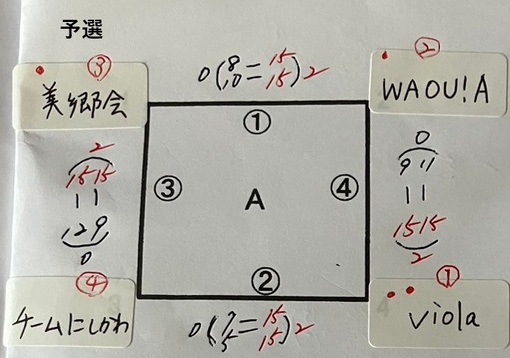 予選
③
美郷会
0(8=15
10=15)2
②
WAOU!A
①
2
15 15
| |
12 9
0
③
A
④
0
9 11
| |
15 15
2
②
④
チームにしかわ
0(7=15
5=15)2
①
viola